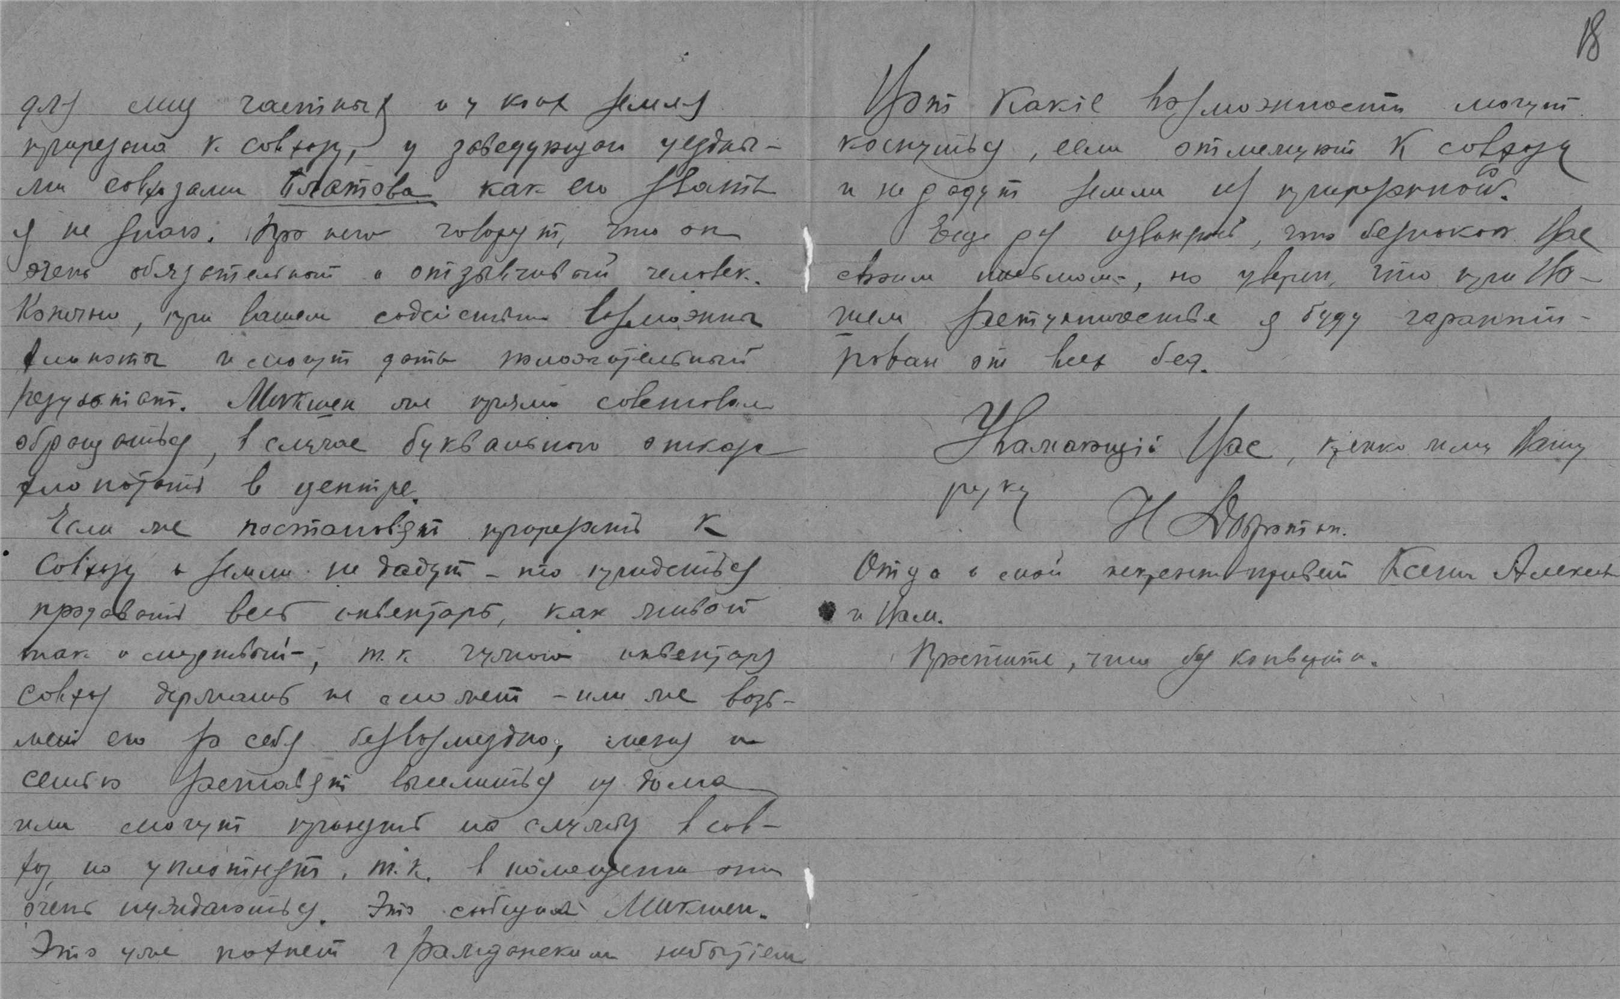 18
для лиц частных и у коих земля
прирезана к совхозу, у заведующаго уездны-
ми совхозами Платова как его звать
я не знаю. Про него говорят, что он
очень обязательный и отзывчивый человек.
Конечно, при вашем содействии возможны
хлопоты и смогут дать положительный
результат. Микшен мне прямо советовал
обращаться, в случае буквального отказа
хлопотать в центре.
Если же постановят прирезать к
совхозу и земли не дадут – то придеться
продавать весь инвентарь, как живой
так и мертвый –, т.к. чужого инвентаря
совхоз держать не может – или же возь-
мет его за себя безвозмездно, меня и
семью заставят выселиться из дома
или смогут принудить на службу в сов-
хоз, но уплотнят, т.к. в помещении они
очень нуждаються. Это сообщил Микшен.
Это уже пахнет гражданским небытием
Вот какие возможности могут
коснуться, если отмежуют к совхозу
и не дадут земли из прирезанной.
Еще раз извиняюсь, что беспокою Вас
своим письмом, но уверен, что при Ва-
шем заступничестве я буду гаранти-
рован от всех бед.
Уважающий Вас, крепко жму Вашу
руку
Н
Отца и мой искренний привет Ксении Алексан
и Вам.
Простите, что без конверта.